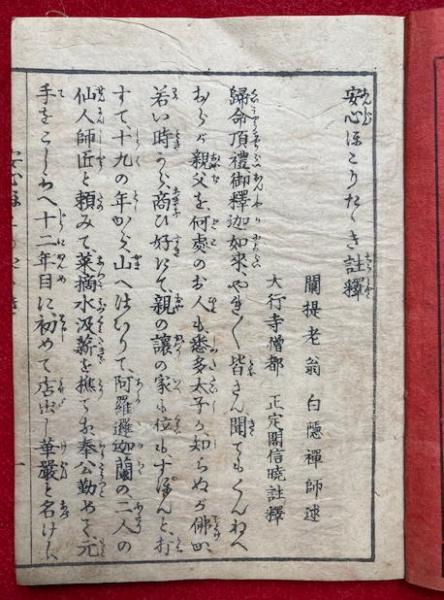 安心ほこりたゝき註釋
闡提老翁 白隱禪師述
大行寺僧都 正定閣信曉註釋
歸命頂禮御釋迦如來、やれ〳〵皆さん聞てもくんねへ
おらが親父を何處のお人も悉多太子か知らぬが佛
若い時から商ひ好にて、親の讓の家も位も、すぽんと、打
すて、十九の年から、山へはいりて、阿羅邏迦蘭の、二人の
仙人師匠と賴みて、菜摘水汲薪を樵ては、奉公勤めて、元
手をこしらへ十二年目に初めて店出し華嚴と名けし